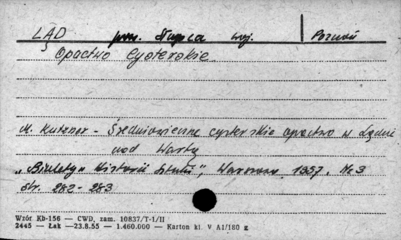 LĄD pow. Słupca woj. Poznań
Opactwo Cysterskie
M. Kutzner - Średniowieczne cysterskie opactwo w Lądzie
nad Wartą
"Biuletyn Historii Sztuki", Warszawa 1957. Nr 3
str. 282 - 283
Wzór Kb-156 — CWD, zam. 10837/T-1/II
2445 — Łak —23.8.55 — 1.460.000 — Karton kl. V A1/180 g